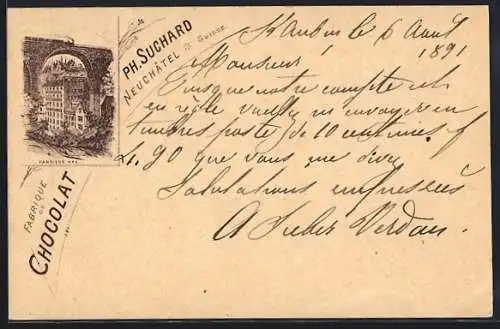 PH. SUCHARD
NEUCHÂTEL
FABRIQUE DE
CHOCOLAT
St Aubin le 6 Avril
1891
Monsieur!
Puisque notre compte est
en règle veuillez m'envoyer en
timbres poste de 10 centimes f
4.90 que vous me divez
Salutations empressées
A Verdan.